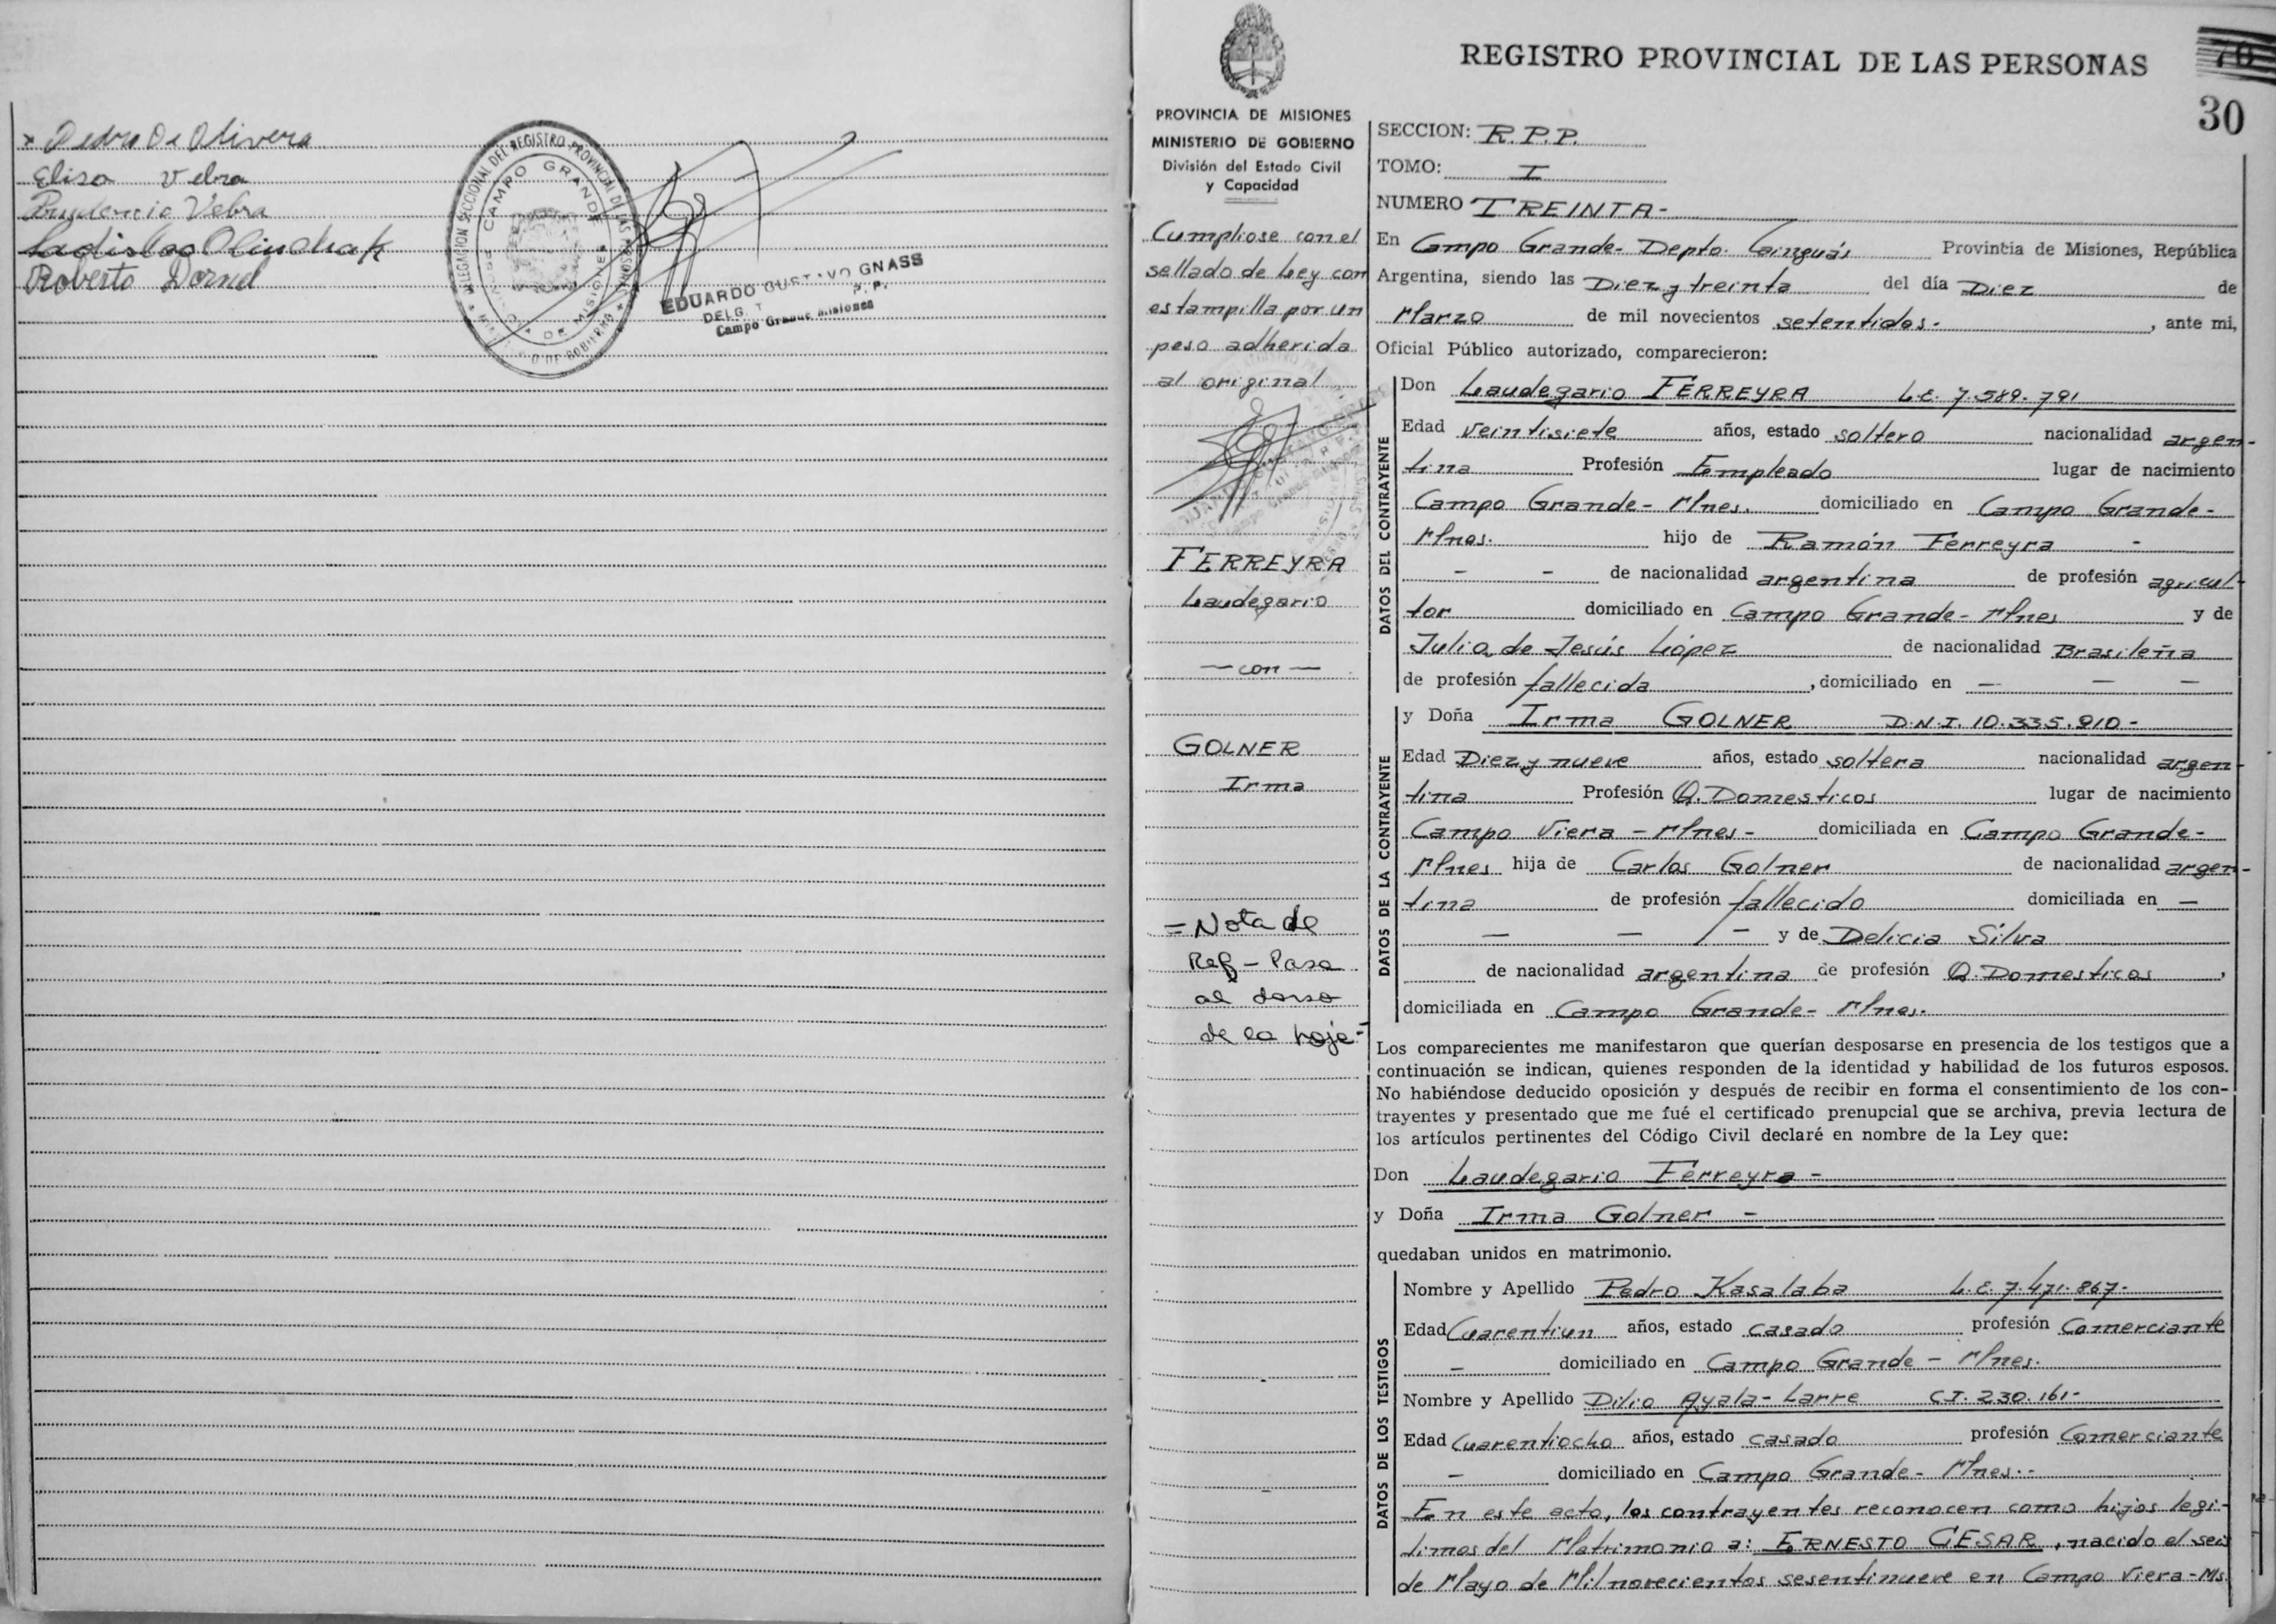 x Pedro De Olivera
Elisa Vebra
Prudencio Vebra
Ladislao Olinchak
Roberto Dornel
DELEGACION SECCIONAL DEL REGISTRO PROVINCIAL DE LAS PERSONAS
CAMPO GRANDE
DE MISIONES
EDUARDO GUSTAVO GNASS
Campo Grande Misiones
REGISTRO PROVINCIAL DE LAS PERSONAS
70
30
PROVINCIA DE MISIONES
MINISTERIO DE GOBIERNO
División del Estado Civil
y Capacidad
Cumpliose con el
sellado de Ley con
estampilla por un
peso adherida
al original
FERREYRA
Laudegario
— con —
GOLNER
Irma
= Nota de
Ref - Pasa
al dorso
de la hoja =
SECCION: R.P.P.
TOMO: I
NUMERO TREINTA -
En Campo Grande - Depto. Cainguás Provincia de Misiones, República
Argentina, siendo las Diez y treinta del día Diez de
Marzo de mil novecientos setentidos - , ante mi,
Oficial Público autorizado, comparecieron:
DATOS DEL CONTRAYENTE
Don Laudegario FERREYRA L.E. 7.589.791
Edad veintisiete años, estado soltero nacionalidad argen-
tina Profesión Empleado lugar de nacimiento
Campo Grande - Mnes. domiciliado en Campo Grande -
Mnes. hijo de Ramón Ferreyra -
- - de nacionalidad argentina de profesión agricul-
tor domiciliado en Campo Grande - Mnes y de
Julia de Jesús López de nacionalidad Brasileña
de profesión fallecida , domiciliado en — — —
DATOS DE LA CONTRAYENTE
y Doña Irma GOLNER D.N.I. 10.335.910 -
Edad Diez y nueve años, estado soltera nacionalidad argen-
tina Profesión Q. Domesticos lugar de nacimiento
Campo Viera - Mnes - domiciliada en Campo Grande -
Mnes hija de Carlos Golner de nacionalidad argen-
tina de profesión fallecido domiciliada en —
— — — y de Delicia Silva
de nacionalidad argentina de profesión Q. Domesticos ,
domiciliada en Campo Grande - Mnes.
Los comparecientes me manifestaron que querían desposarse en presencia de los testigos que a
continuación se indican, quienes responden de la identidad y habilidad de los futuros esposos.
No habiéndose deducido oposición y después de recibir en forma el consentimiento de los con-
trayentes y presentado que me fué el certificado prenupcial que se archiva, previa lectura de
los artículos pertinentes del Código Civil declaré en nombre de la Ley que:
Don Laudegario Ferreyra -
y Doña Irma Golner -
quedaban unidos en matrimonio.
DATOS DE LOS TESTIGOS
Nombre y Apellido Pedro Kasalaba L.E. 7.471.867 -
Edad Cuarentiun años, estado casado profesión Comerciante
- domiciliado en Campo Grande - Mnes.
Nombre y Apellido Dilio Ayala - Larre C.I. 230.161 -
Edad Cuarentiocho años, estado casado profesión Comerciante
- domiciliado en Campo Grande - Mnes. -
En este acto, los contrayentes reconocen como hijos legi-
timos del Matrimonio a: ERNESTO CESAR, nacido el seis
de Mayo de Mil novecientos sesentinueve en Campo Viera - Ms.